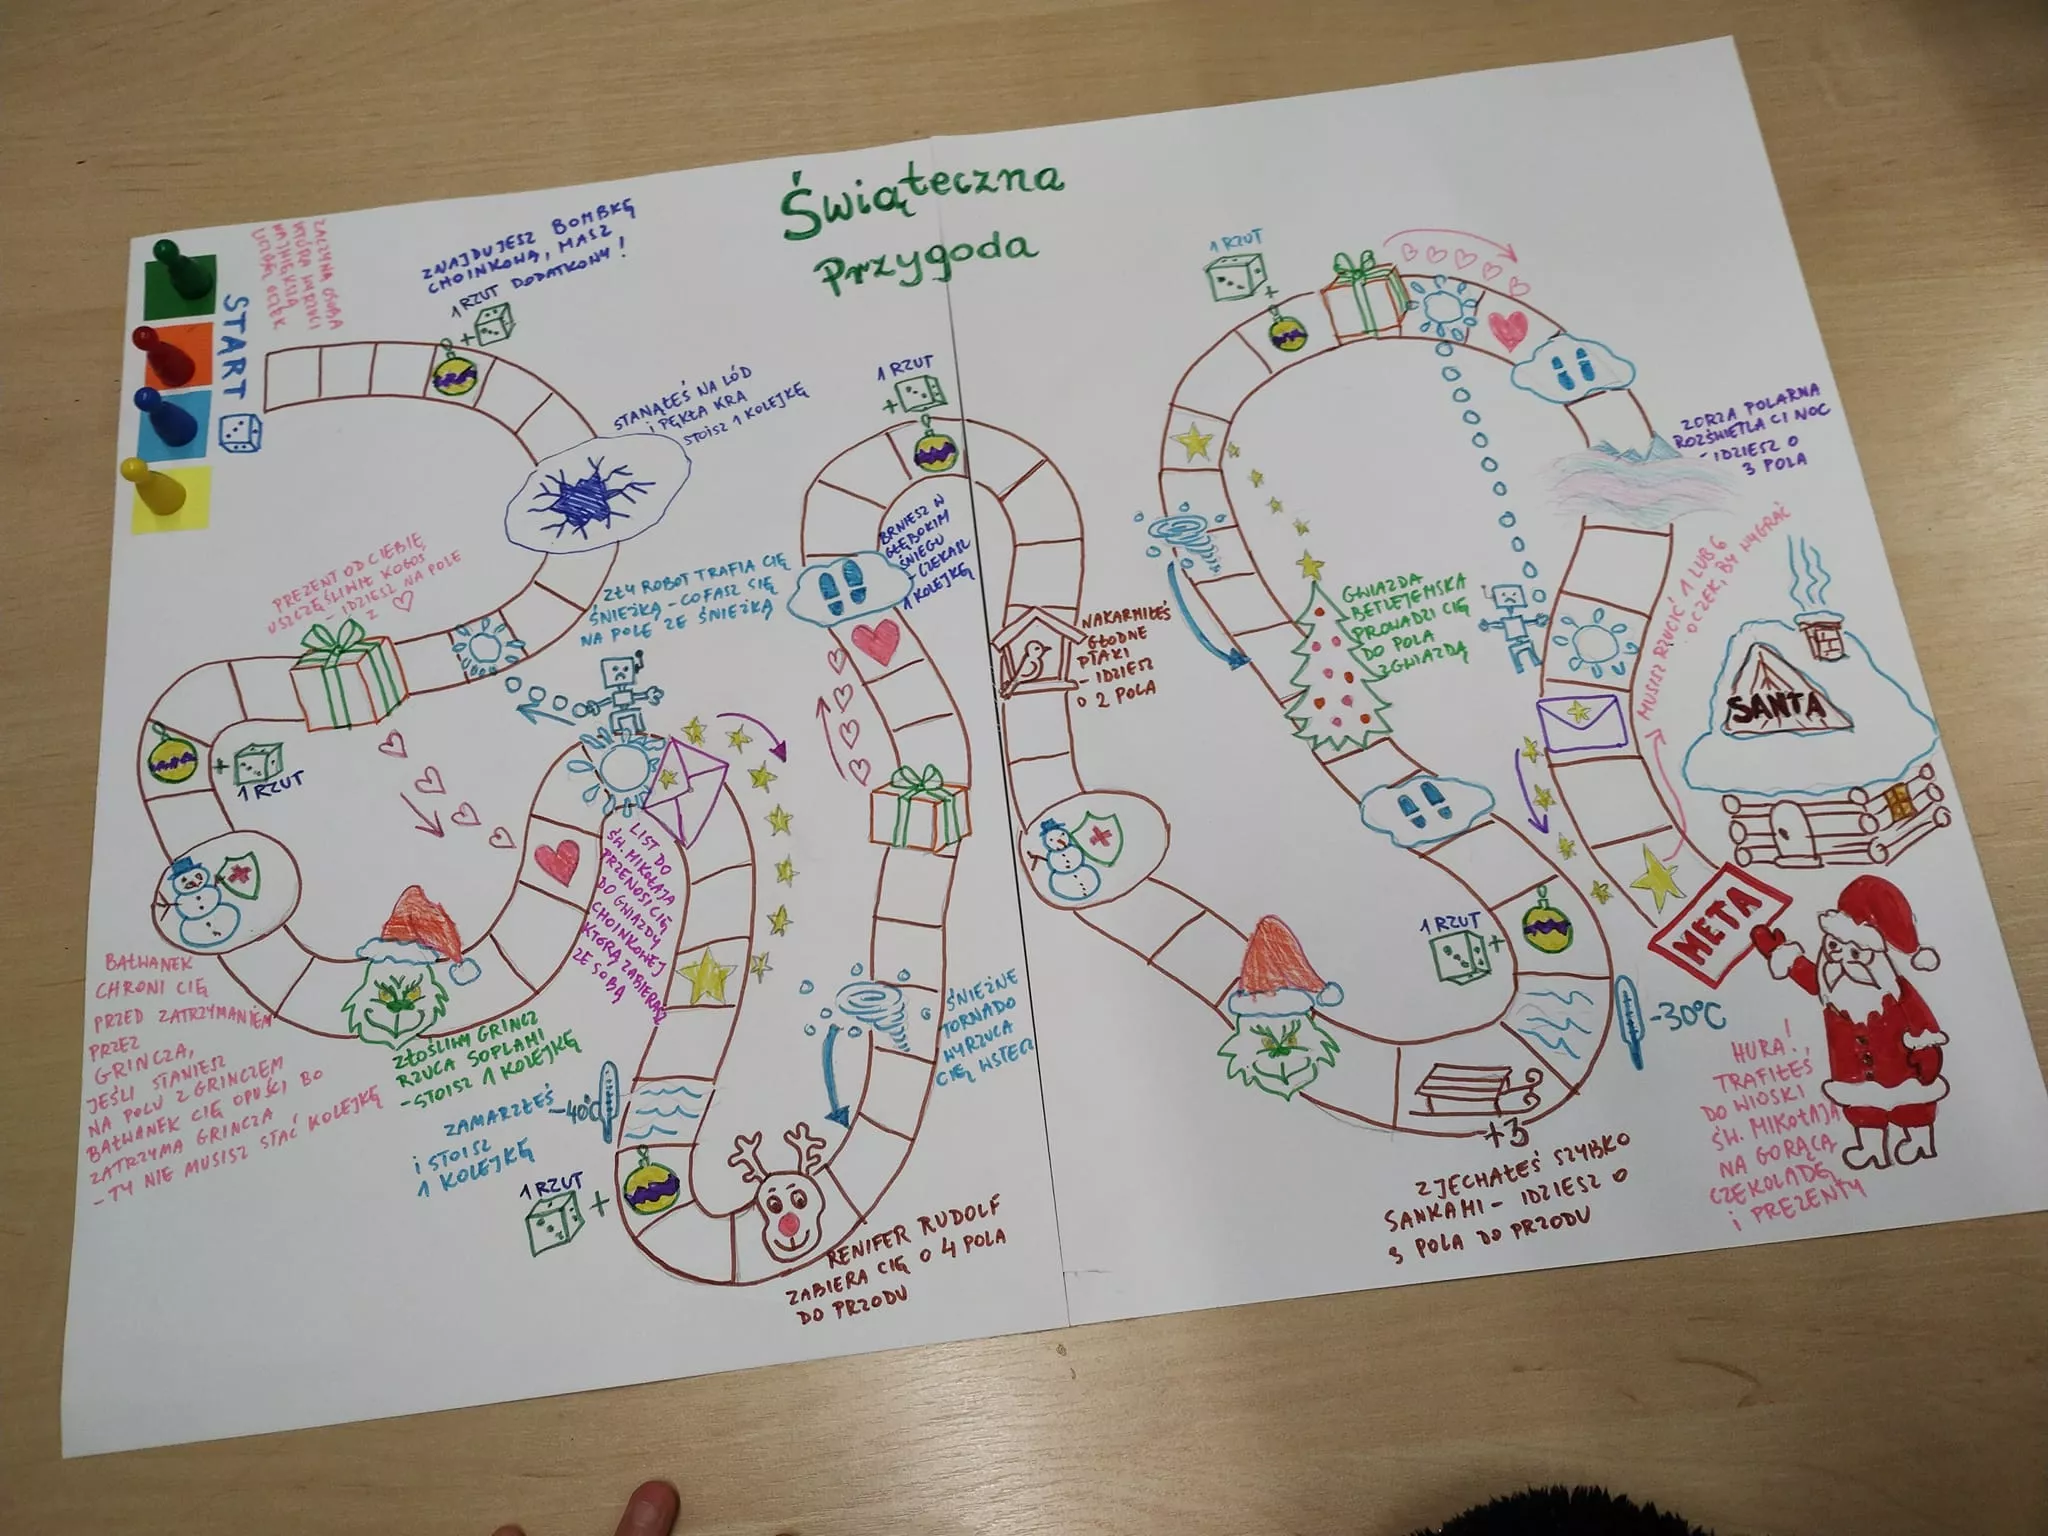 Świąteczna
Przygoda
START
ZACZYNA OSOBA
KTÓRA WYRZUCI
NAJWIĘKSZĄ
LICZBĘ OCZEK
ZNAJDUJESZ BOMBKĘ
CHOINKOWĄ, MASZ
1 RZUT DODATKOWY!
+
STANĄŁEŚ NA LÓD
I PĘKŁA KRA
STOISZ 1 KOLEJKĘ
PREZENT OD CIEBIE
USZCZĘŚLIWIŁ KOGOŚ
- IDZIESZ NA POLE
Z ♡
ZŁY ROBOT TRAFIA CIĘ
ŚNIEŻKĄ - COFASZ SIĘ
NA POLE ZE ŚNIEŻKĄ
+
1 RZUT
BAŁWANEK
CHRONI CIĘ
PRZED ZATRZYMANIEM
PRZEZ
GRINCZA,
JEŚLI STANIESZ
NA POLU Z GRINCZEM
BAŁWANEK CIĘ OPUŚCI BO
ZATRZYMA GRINCZA
- TY NIE MUSISZ STAĆ KOLEJKĘ
ZŁOŚLIWY GRINCZ
RZUCA SOPLAMI
- STOISZ 1 KOLEJKĘ
LIST DO
ŚW. MIKOŁAJA
PRZENOSI CIĘ
DO GWIAZDY
CHOINKOWEJ
KTÓRĄ ZABIERASZ
ZE SOBĄ
ZAMARZŁEŚ
I STOISZ
1 KOLEJKĘ
-40°C
1 RZUT
+
RENIFER RUDOLF
ZABIERA CIĘ O 4 POLA
DO PRZODU
ŚNIEŻNE
TORNADO
WYRZUCA
CIĘ WSTECZ
1 RZUT
+
BRNIESZ W
GŁĘBOKIM
ŚNIEGU
- CZEKASZ
1 KOLEJKĘ
NAKARMIŁEŚ
GŁODNE
PTAKI
- IDZIESZ
O 2 POLA
+3
ZJECHAŁEŚ SZYBKO
SANKAMI - IDZIESZ O
3 POLA DO PRZODU
-30°C
1 RZUT
+
GWIAZDA
BETLEJEMSKA
PROWADZI CIĘ
DO POLA
Z GWIAZDĄ
1 RZUT
+
ZORZA POLARNA
ROZŚWIETLA CI NOC
- IDZIESZ O
3 POLA
MUSISZ RZUCIĆ 1 LUB 6
OCZEK, BY WYGRAĆ
SANTA
META
HURA!
TRAFIŁEŚ
DO WIOSKI
ŚW. MIKOŁAJA
NA GORĄCĄ
CZEKOLADĘ
I PREZENTY